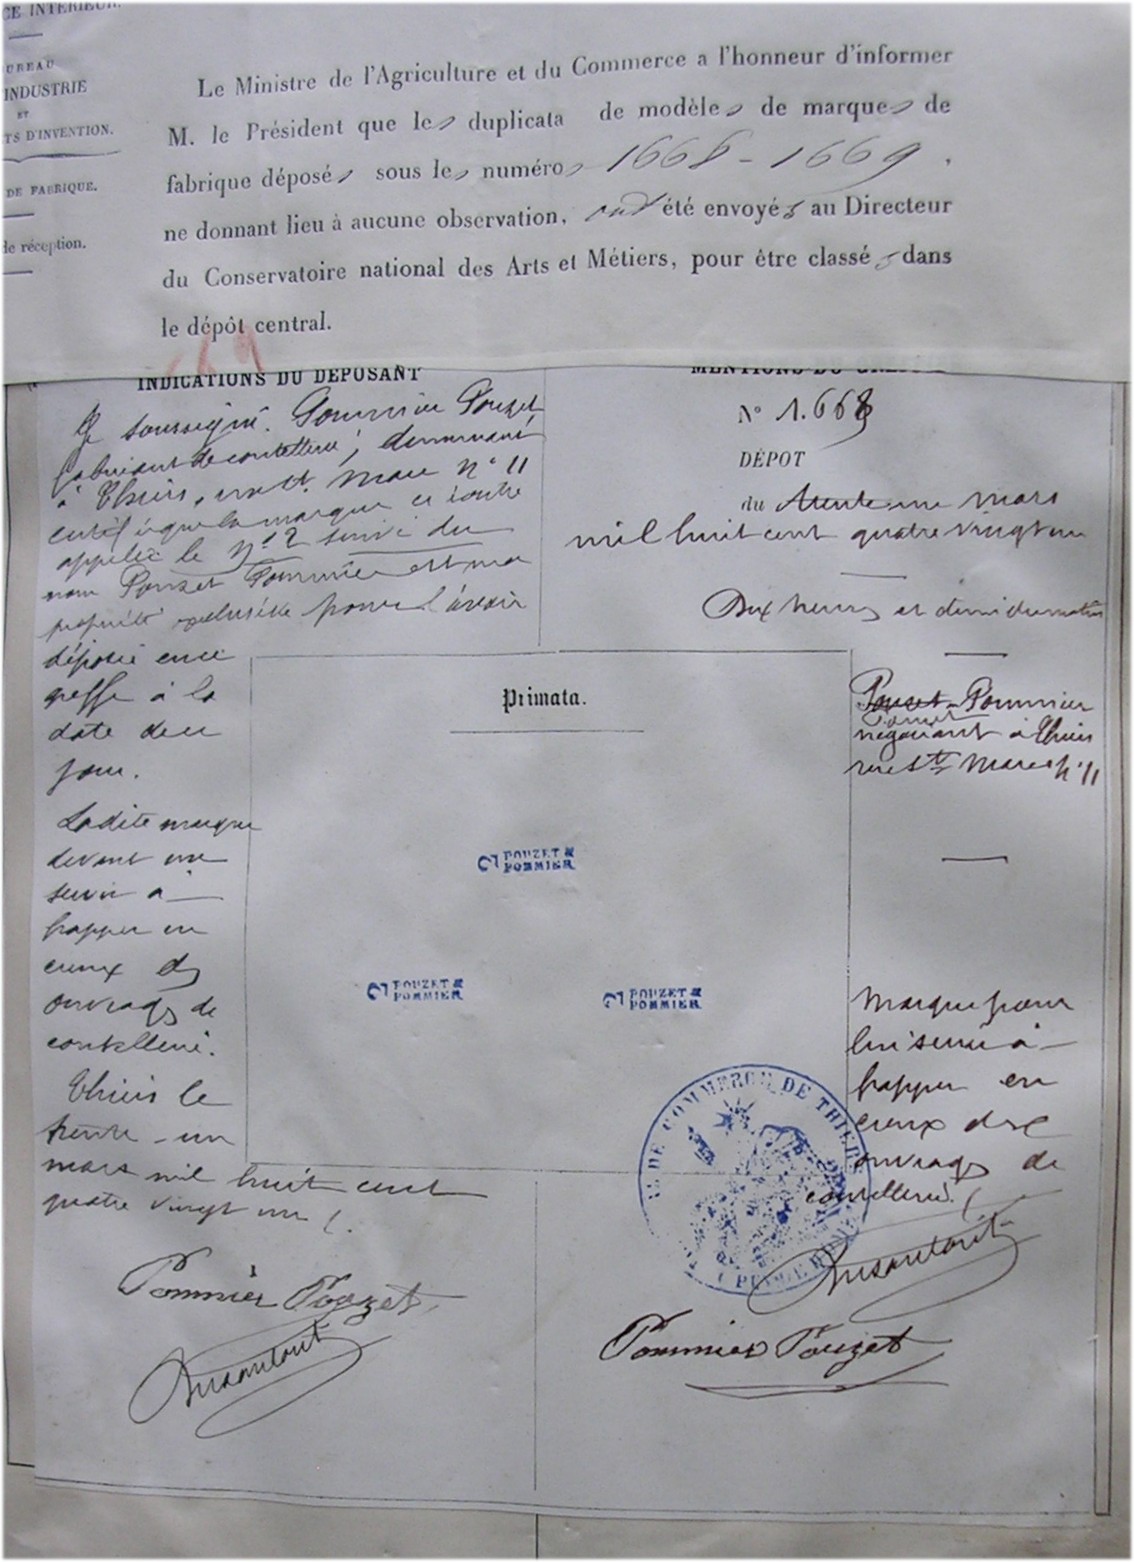 CE INTÉRIEUR.
UREAU
INDUSTRIE
ET
TS D'INVENTION.
DE FABRIQUE.
de réception.
Le Ministre de l'Agriculture et du Commerce a l'honneur d'informer
M. le Président que les duplicata de modèles de marques de
fabrique déposés sous les numéros 1668 - 1669.
ne donnant lieu à aucune observation, ont été envoyés au Directeur
du Conservatoire national des Arts et Métiers, pour être classés dans
le dépôt central.
INDICATIONS DU DÉPOSANT
Je soussigné. Pommier Pouzet
fabricant de coutellerie, demeurant
à Thiers, rue Ste Marie n° 11
certifie que la marque ci contre
appelée le n° 2 suivi du
nom Pouzet Pommier est ma
propriété exclusive pour l'avoir
déposée au
greffe à la
date de ce
jour.
Ladite marque
devant me
servir à
frapper en
creux des
ouvrages de
coutellerie.
Thiers le
trente-un
mars mil huit cent
quatre vingt un
Pommier Pouzet
MENTIONS DU GREFFIER
N° 1.668
DÉPOT
du trente un mars
mil huit cent quatre vingt un
Dix heures et demi du matin
Pouzet-Pommier
négociant à Thiers
rue Ste Marie n° 11
Marque pour
lui servir à
frapper en
creux des
ouvrages de
coutellerie.
Primata.
2 POUZET &
POMMIER
2 POUZET &
POMMIER
2 POUZET &
POMMIER
DE COMMERCE DE THIERS
Pommier Pouzet